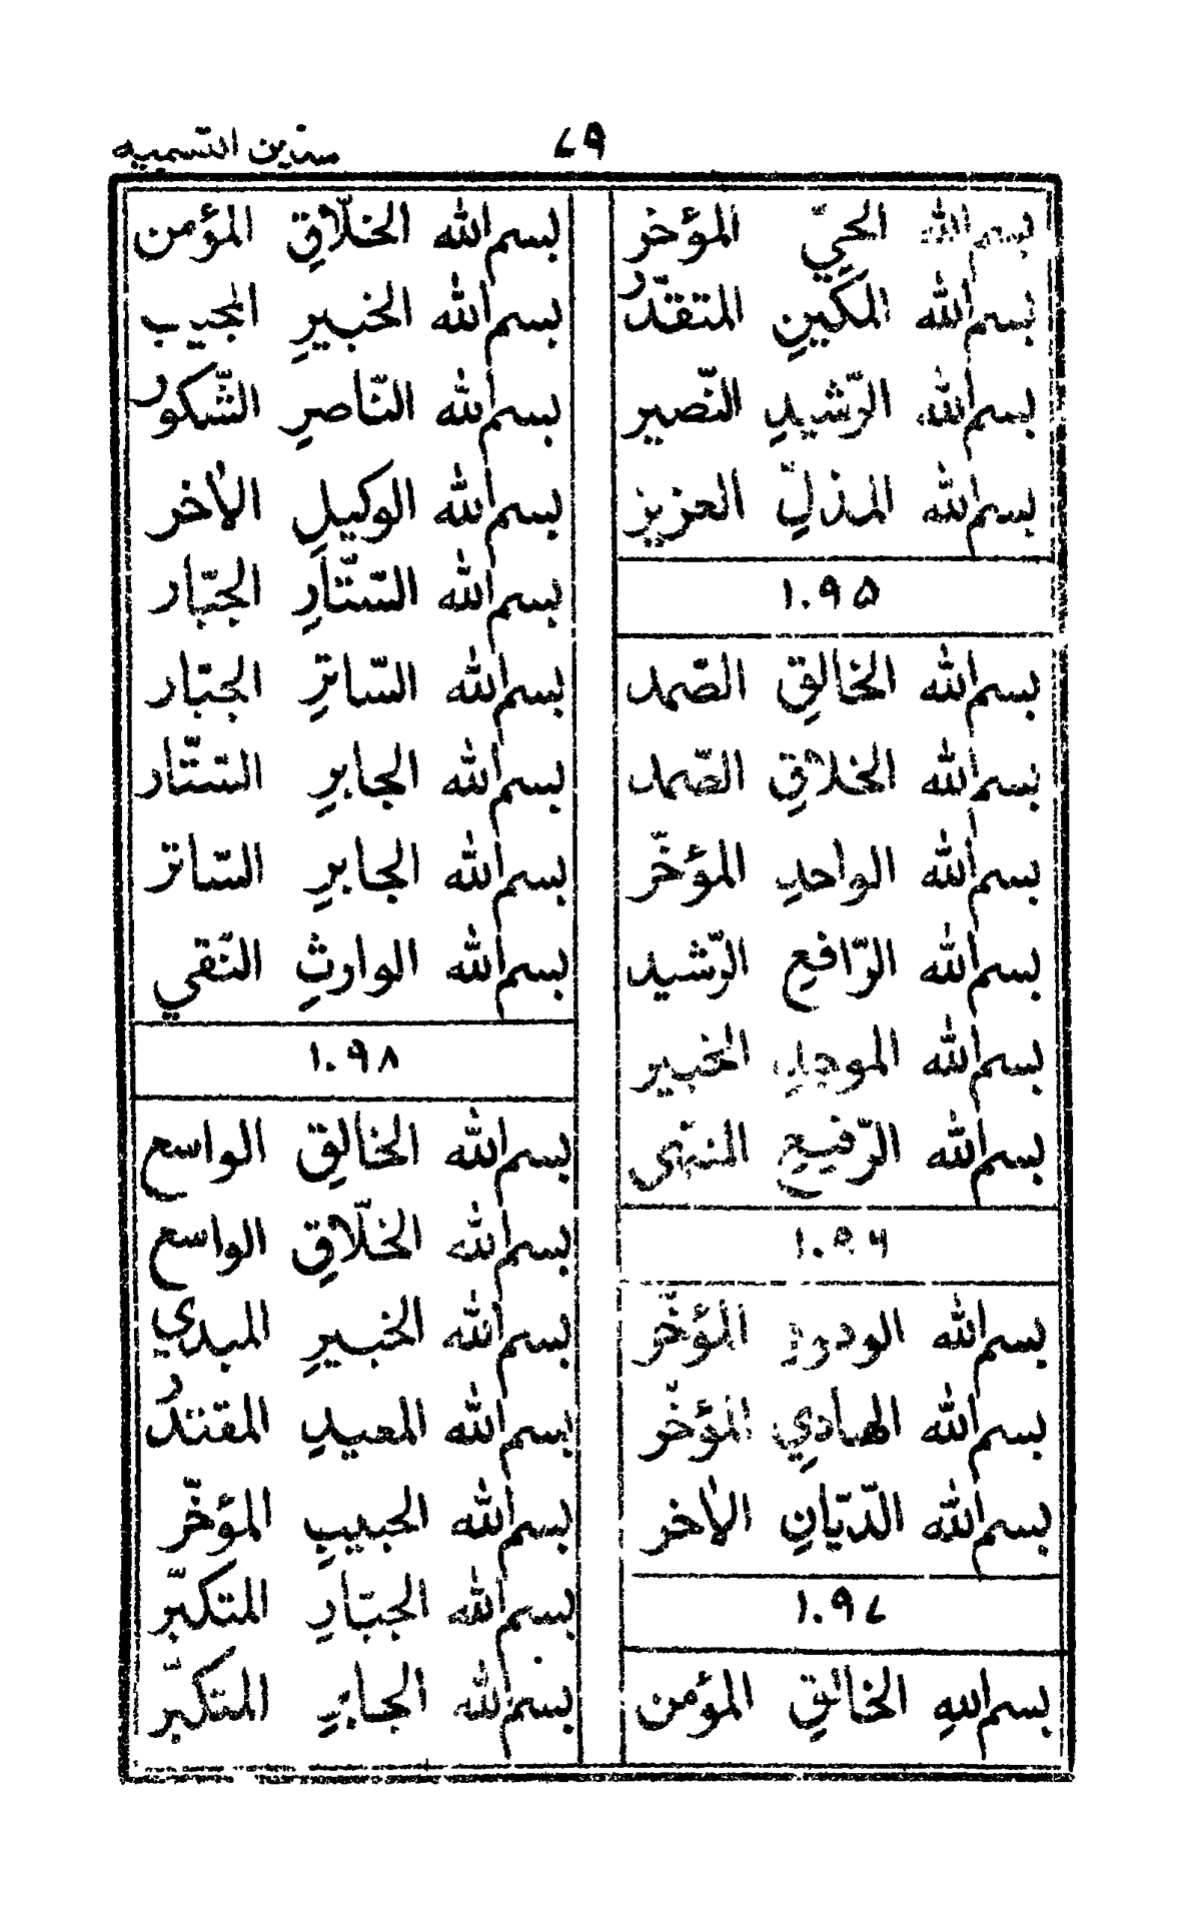 ٧٩
سنين التسمیه
بسم الله الحيِّ المؤخر
بسم الله المكينِ المتقدّر
بسم الله الرّشيدِ النّصير
بسم الله المذلِّ العزيز
١٠٩٥
بسم الله الخالقِ الصّمد
بسم الله الخلاقِ الصّمد
بسم الله الواحدِ المؤخّر
بسم الله الرّافعِ الرّشيد
بسم الله الموجدِ الخبير
بسم الله الرّفيعِ المنتهى
١٠٩٦
بسم الله الودودِ المؤخّر
بسم الله الهادي المؤخّر
بسم الله الدّيّانِ الاٰخر
١٠٩٧
بسم اللهِ الخالقِ المؤمن
بسم الله الخلّاقِ المؤمن
بسم الله الخبيرِ المجيب
بسم الله النّاصرِ الشّكور
بسم الله الوكيلِ الاٰخر
بسم الله السّتّارِ الجبّار
بسم الله السّاترِ الجبّار
بسم الله الجابرِ السّتّار
بسم الله الجابرِ السّاتر
بسم الله الوارثِ النّقي
١٠٩٨
بسم الله الخالقِ الواسع
بسم الله الخلّاقِ الواسع
بسم الله الخبيرِ المبدي
بسم الله المعيدِ المقتدر
بسم الله الحبيبِ المؤخّر
بسم الله الجبّارِ المتكبّر
بسم الله الجابرِ المتكبّر